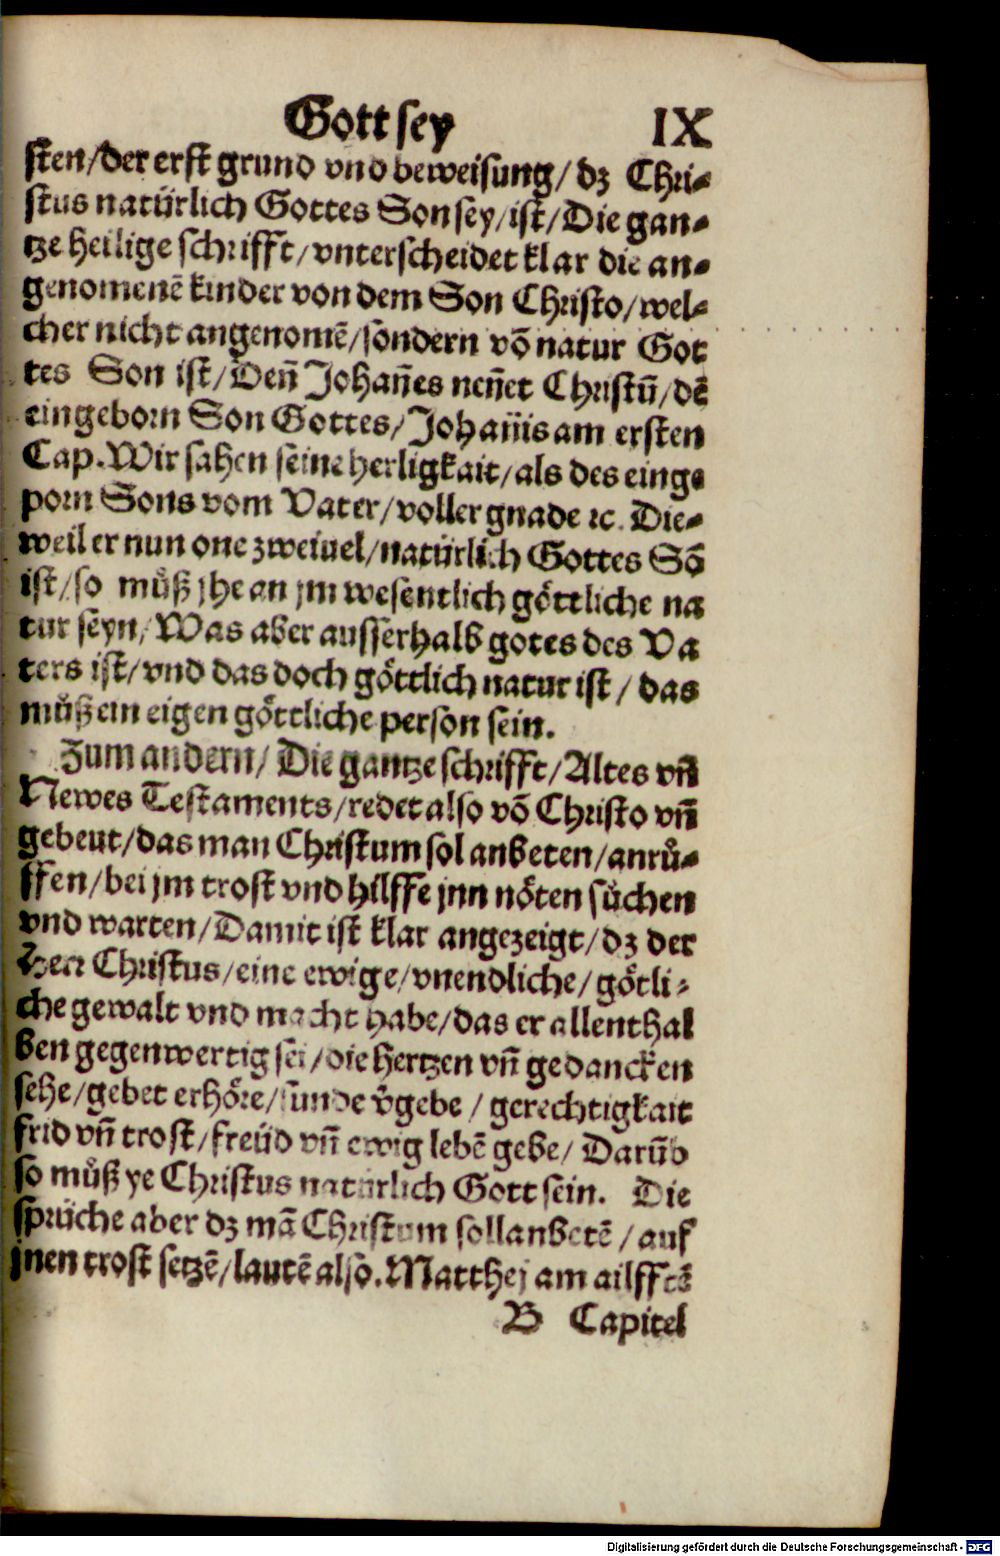 Gott sey IX
sten/der erst grund vnd beweisung/dz Chri⸗
stus natürlich Gottes Son sey/ist/Die gan⸗
tze heilige schrifft/vnterscheidet klar die an⸗
genomenē kinder von dem Son Christo/wel⸗
cher nicht angenomē/sondern vō natur Got
tes Son ist/Deñ Johañes neñet Christū/dē
eingeborn Son Gottes/Johañis am ersten
Cap. Wir sahen seine herligkait/als des einge
porn Sons vom Vater/voller gnade ꝛc. Die⸗
weil er nun one zweiuel/natürlich Gottes Sō
ist/so můß jhe an jm wesentlich göttliche na
tur seyn/Was aber ausserhalb gotes des Va
ters ist/vnd das doch göttlich natur ist/das
můß ein eigen göttliche person sein.
Zum andern/Die gantze schrifft/Altes vñ
Newes Testaments/redet also vō Christo vñ
gebeut/das man Christum sol anbeten/anrů⸗
ffen/bei jm trost vnd hilffe jnn nöten sůchen
vnd warten/Damit ist klar angezeigt/dz der
Herr Christus/eine ewige/vnendliche/götli⸗
che gewalt vnd macht habe/das er allenthal
ben gegenwertig sei/die hertzen vñ gedancken
sehe/gebet erhöre/sunde v̄gebe/gerechtigkait
frid vñ trost/freüd vñ ewig lebē gebe/Darūb
so můß ye Christus natürlich Gott sein. Die
sprüche aber dz mā Christum soll anbetē/auf
jnen trost setzē/lautē also. Matthej am ailfftē
B Capitel
Digitalisierung gefördert durch die Deutsche Forschungsgemeinschaft - DFG